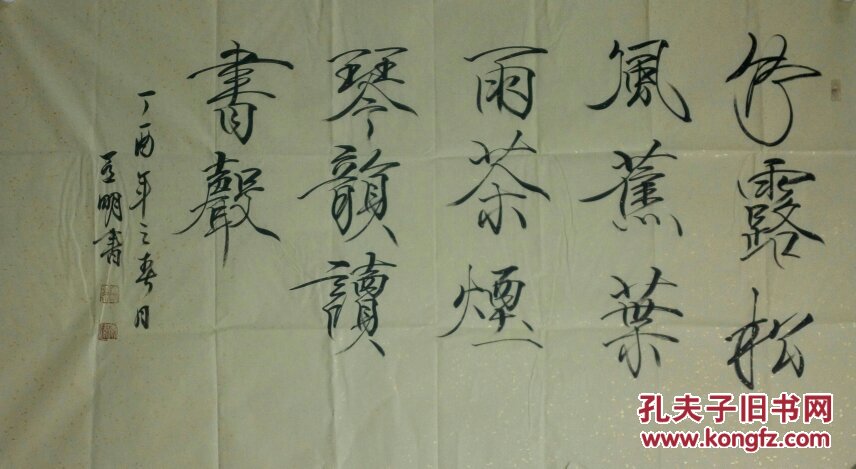 竹露松
風蕉葉
雨茶煙
琴韻讀
書聲
丁酉年之春月
明書
孔夫子旧书网
www.kongfz.com